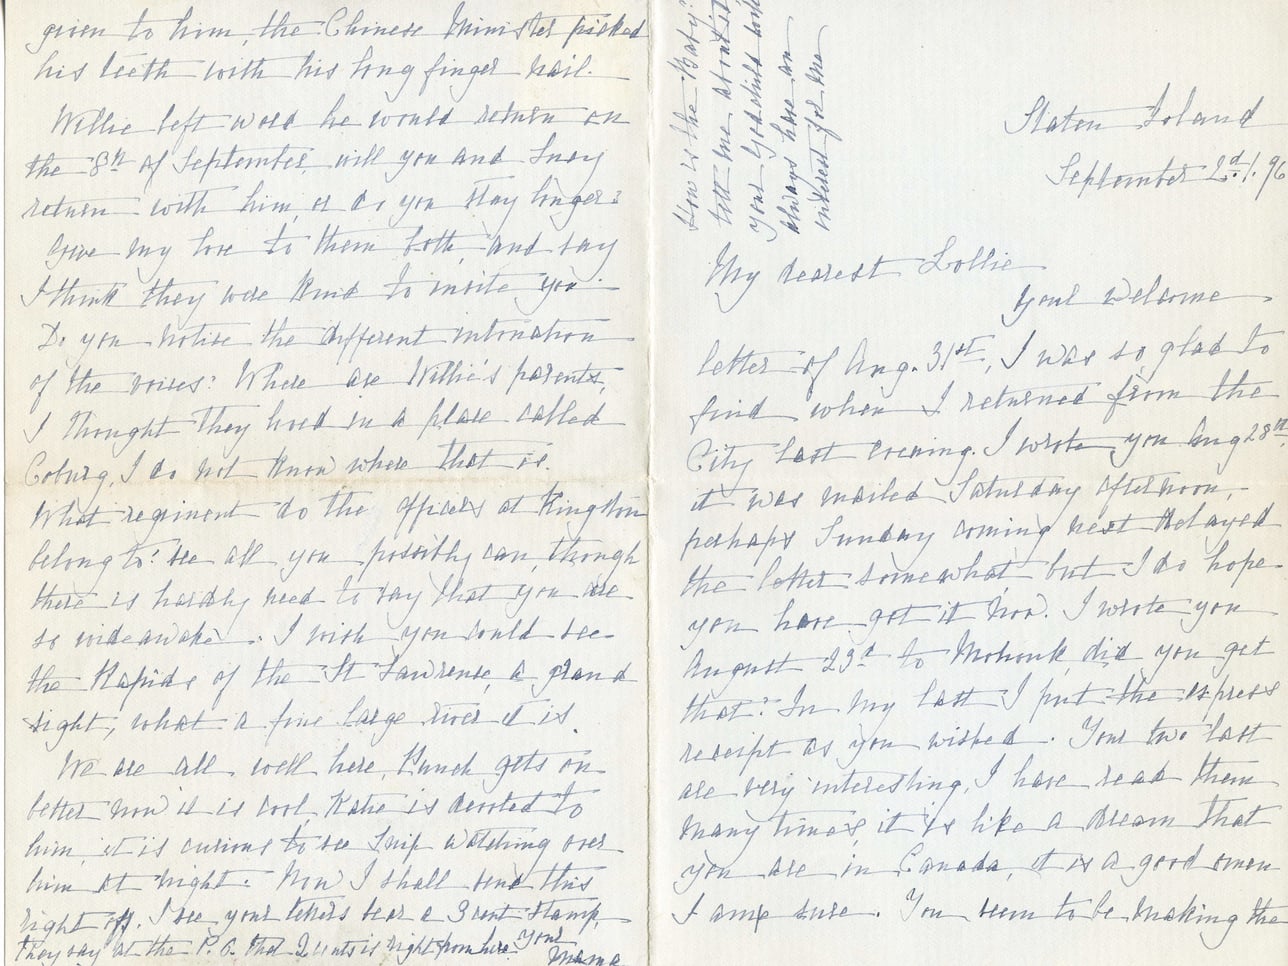 Staten Island
September 2d/. 96
My dearest Lollie
Your welcome
letter of Aug. 31st, I was so glad to
find when I returned from the
City last evening. I wrote you Aug 28th,
it was mailed Saturday afternoon,
perhaps Sunday coming next delayed
the letter somewhat but I do hope
you have got it now. I wrote you
August 23d to Mohonk did you get
that? In my last I put the express
receipt as you wished. Your two last
are very interesting, I have read them
many times, it is like a dream that
you are in Canada, it is a good omen
I am sure. You seem to be making the
How is the Baby?
tell me about it
your Godchild
always have an
interest for me
given to him, the Chinese Minister picked
his teeth with his long finger nail.
Willie left word he would return on
the 8th of September, will you and Lucy
return with him, or do you stay longer?
Give my love to them both, and say
I think they were kind to invite you.
Do you notice the different intonation
of the voices? Where are Willie's parents,
I thought they lived in a place called
Coburg, I do not know where that is.
What regiment do the officers at Kingston
belong to? see all you possibly can, though
there is hardly need to say that you are
so wide awake. I wish you could see
the Rapids of the St Lawrence, a grand
sight, what a fine large river it is.
We are all well here, Punch gets on
better now it is cool. Katie is devoted to
him, it is curious to see Snip watching over
him at night. Now I shall send this
right off. I see your letters bear a 3 cent stamp,
they say at the P. O. that 2 cents is right from here. Your
Mama